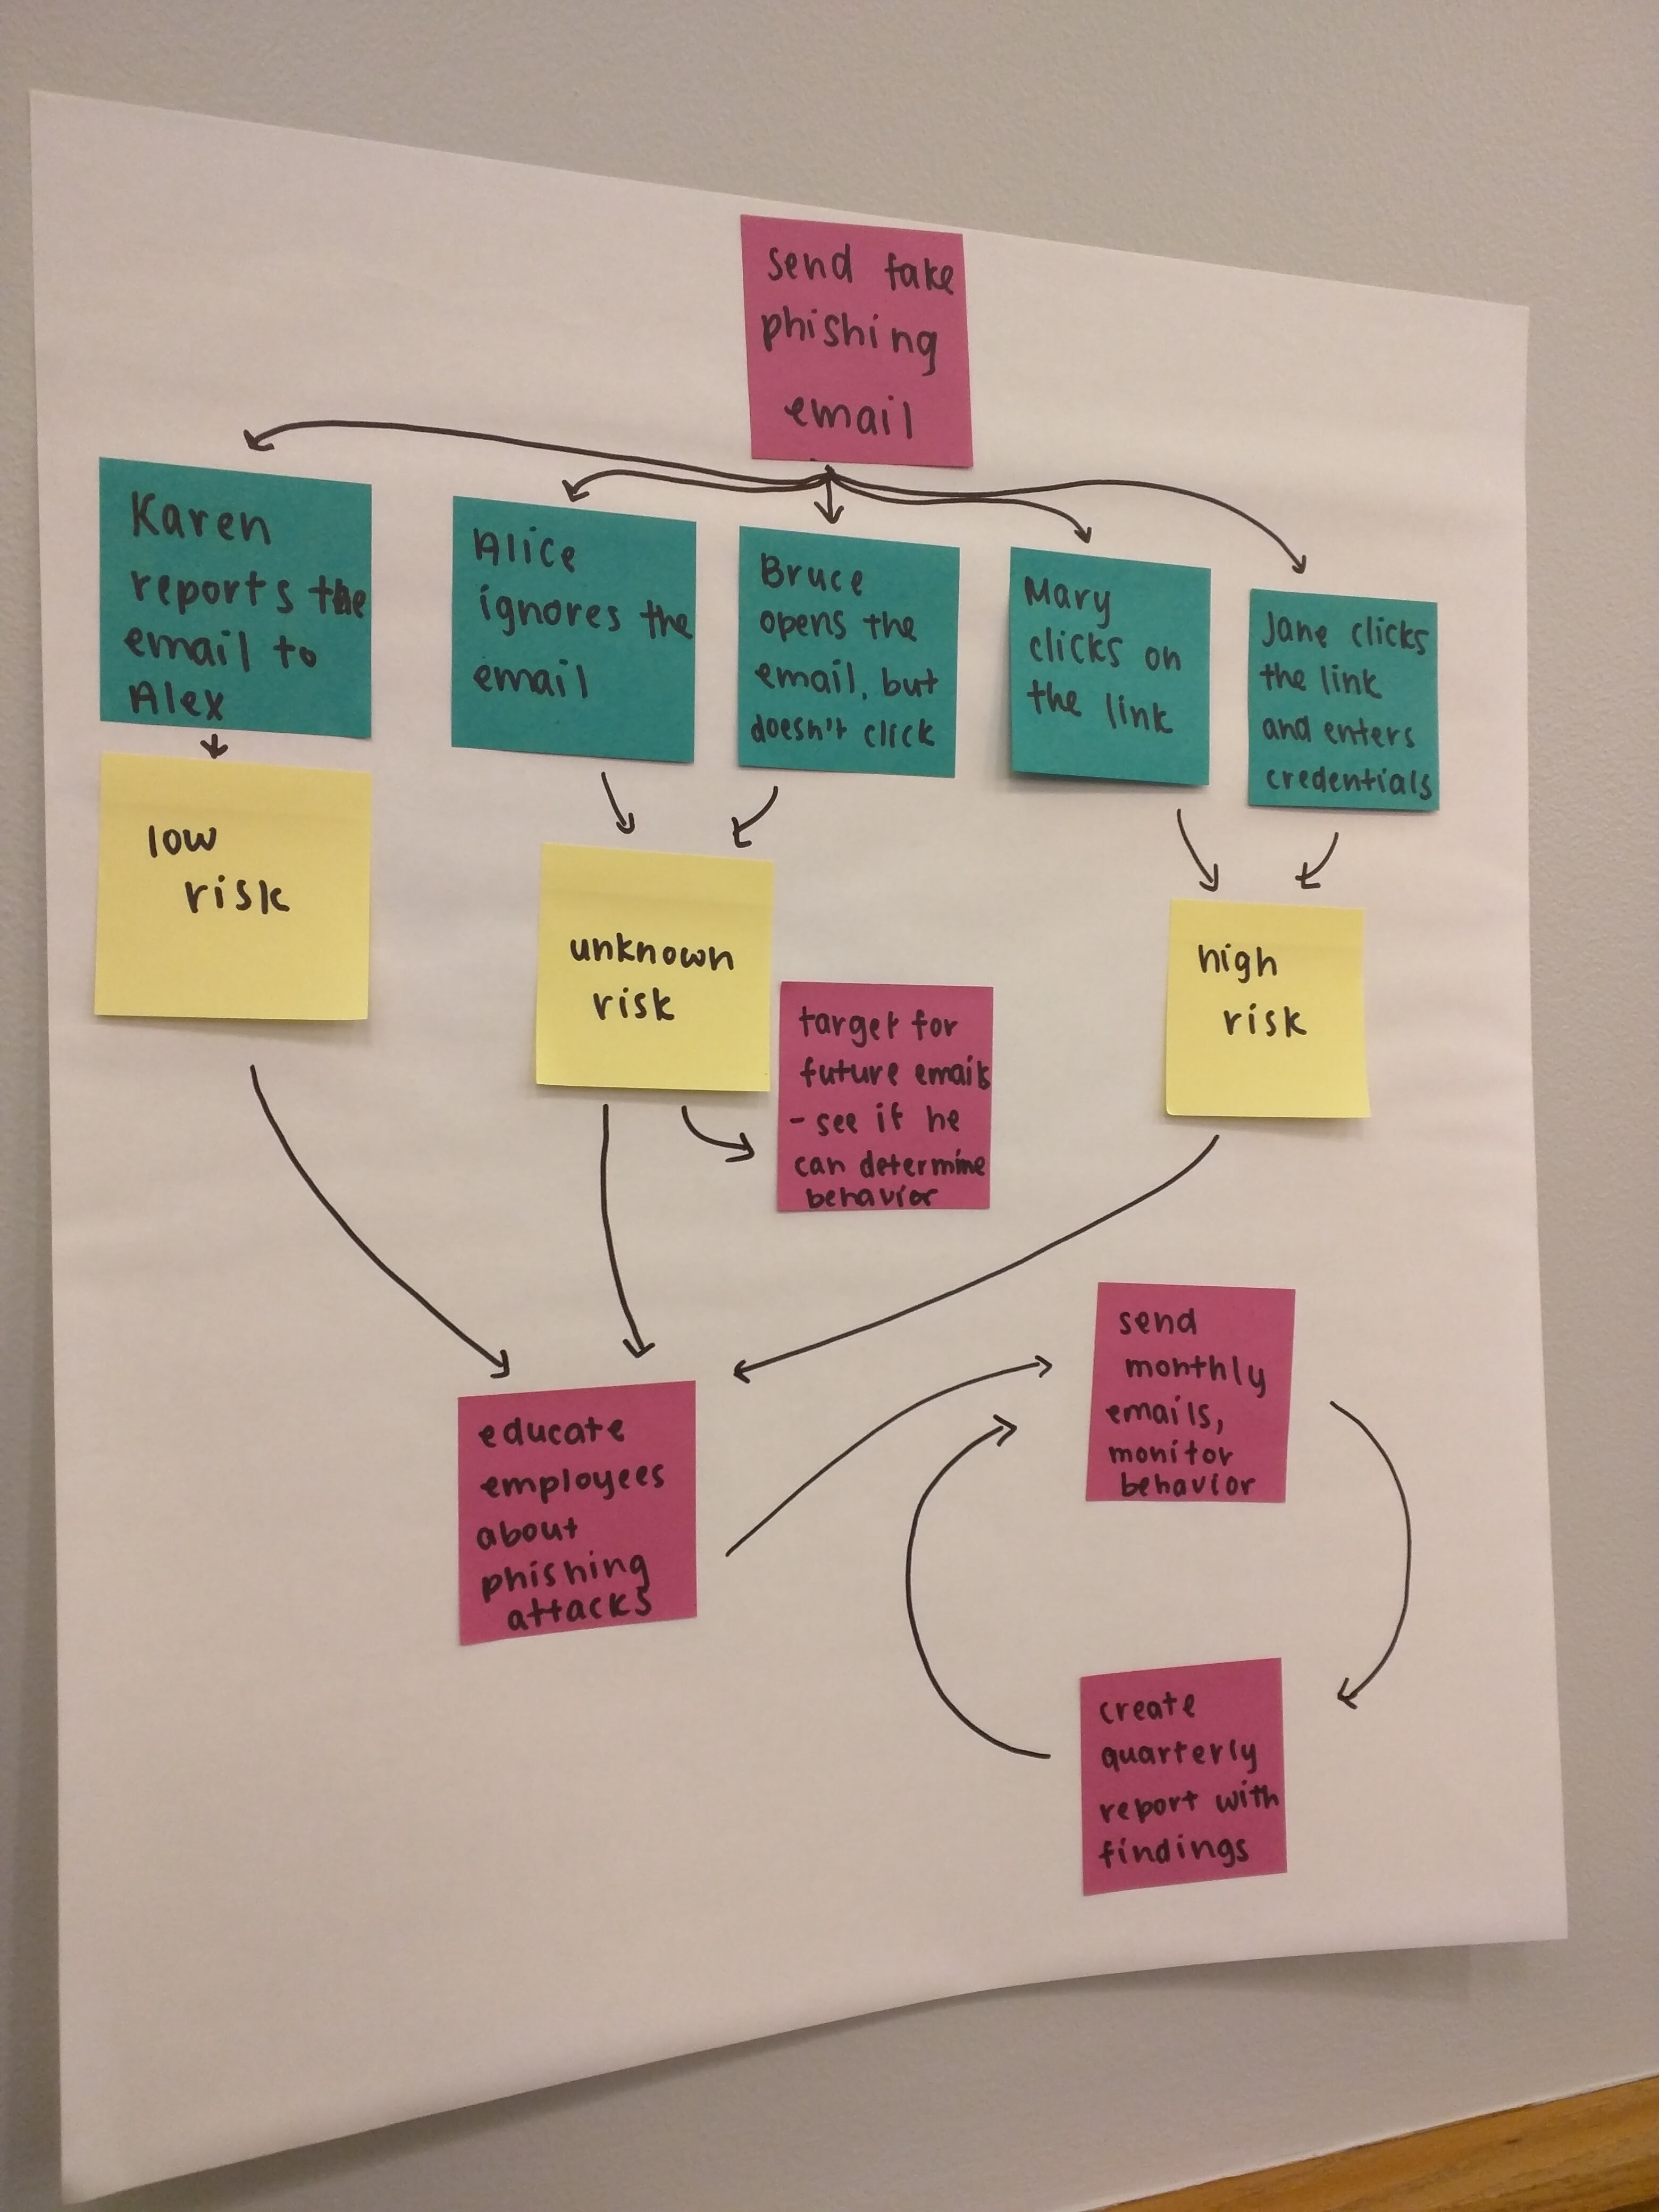 send fake
phishing
email
Karen
reports the
email to
Alex
Alice
ignores the
email
Bruce
opens the
email, but
doesn't click
Mary
clicks on
the link
Jane clicks
the link
and enters
credentials
low
risk
unknown
risk
target for
future emails
- see if he
can determine
behavior
high
risk
educate
employees
about
phishing
attacks
send
monthly
emails,
monitor
behavior
create
quarterly
report with
findings